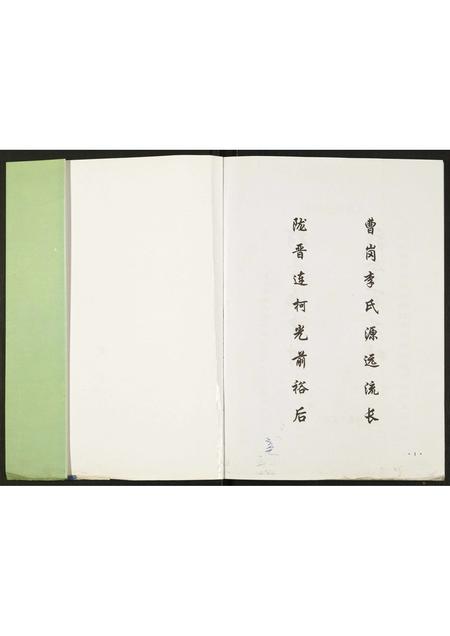 曹岗李氏源远流长
陇晋连柯光前裕后
·1·